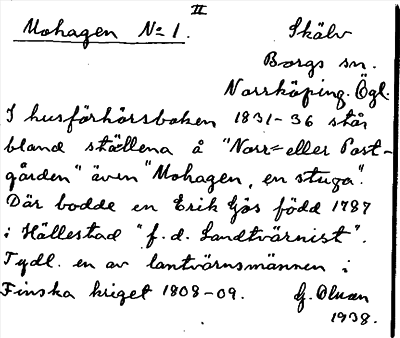 II
Mohagen No 1. Skälv
Borgs sn.
Norrköping. Ögl.
I husförhörsboken 1831-36 står
bland ställena å "Norr= eller Post-
gården" även "Mohagen, en stuga".
Där bodde en Erik Gjös född 1787
i Hällestad "f.d. Landtvärnist".
Tydl. en av lantvärnsmännen i
Finska kriget 1808-09. G. Olson
1938.